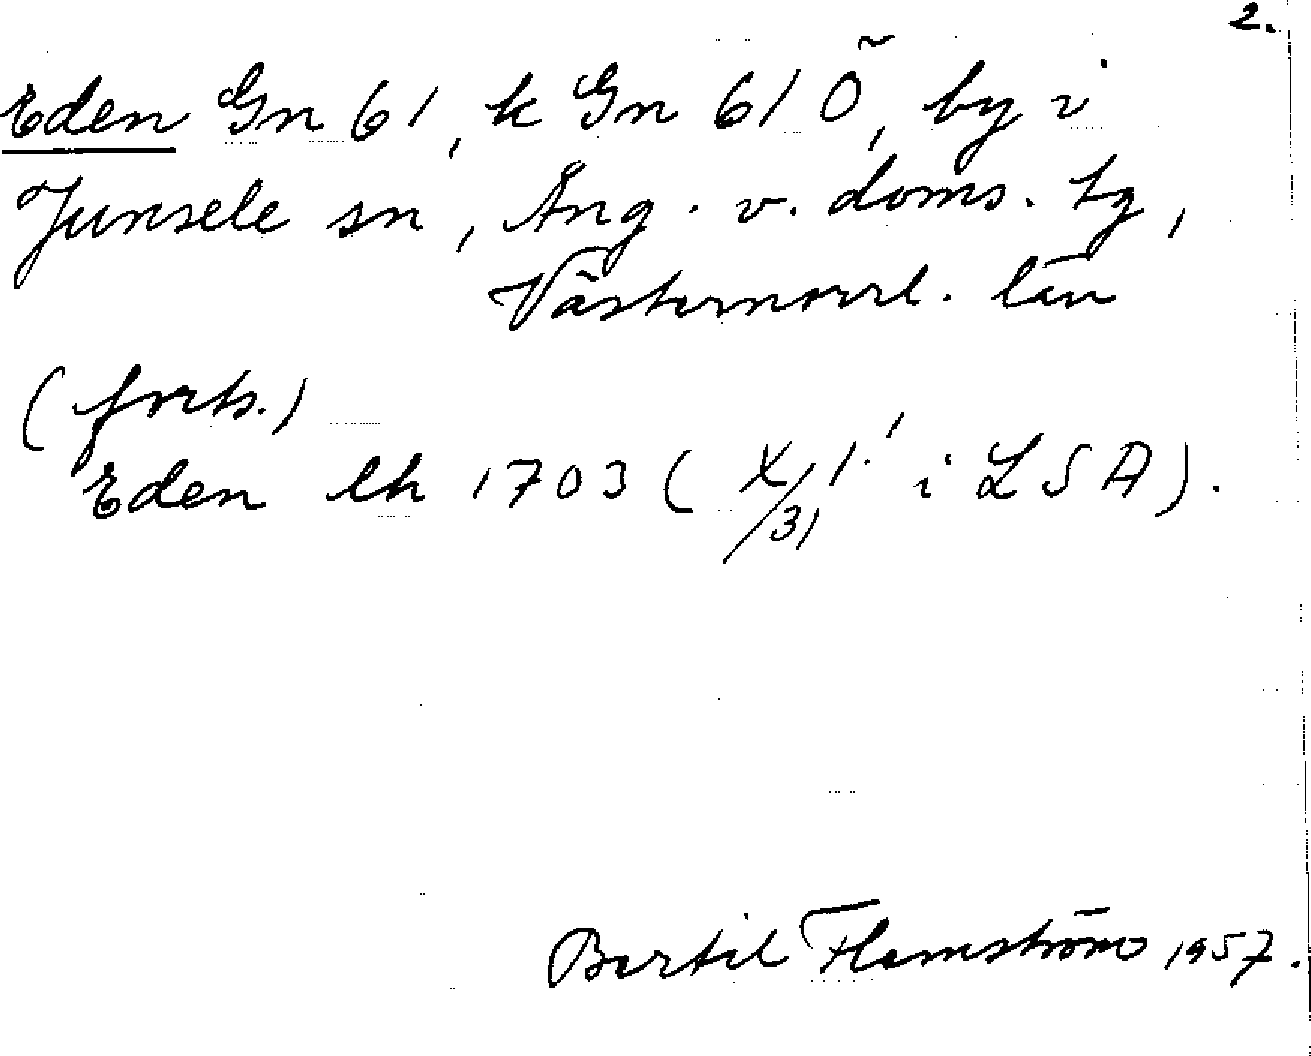 2.
Eden Gn 61, k Gn 61 Ö, by i
Junsele sn, Ång. v. doms. tg,
Västernorrl. län
(forts.)
Eden lh 1703 ( X/31 1:1 i LSA).
Bertil Flemström 1957.